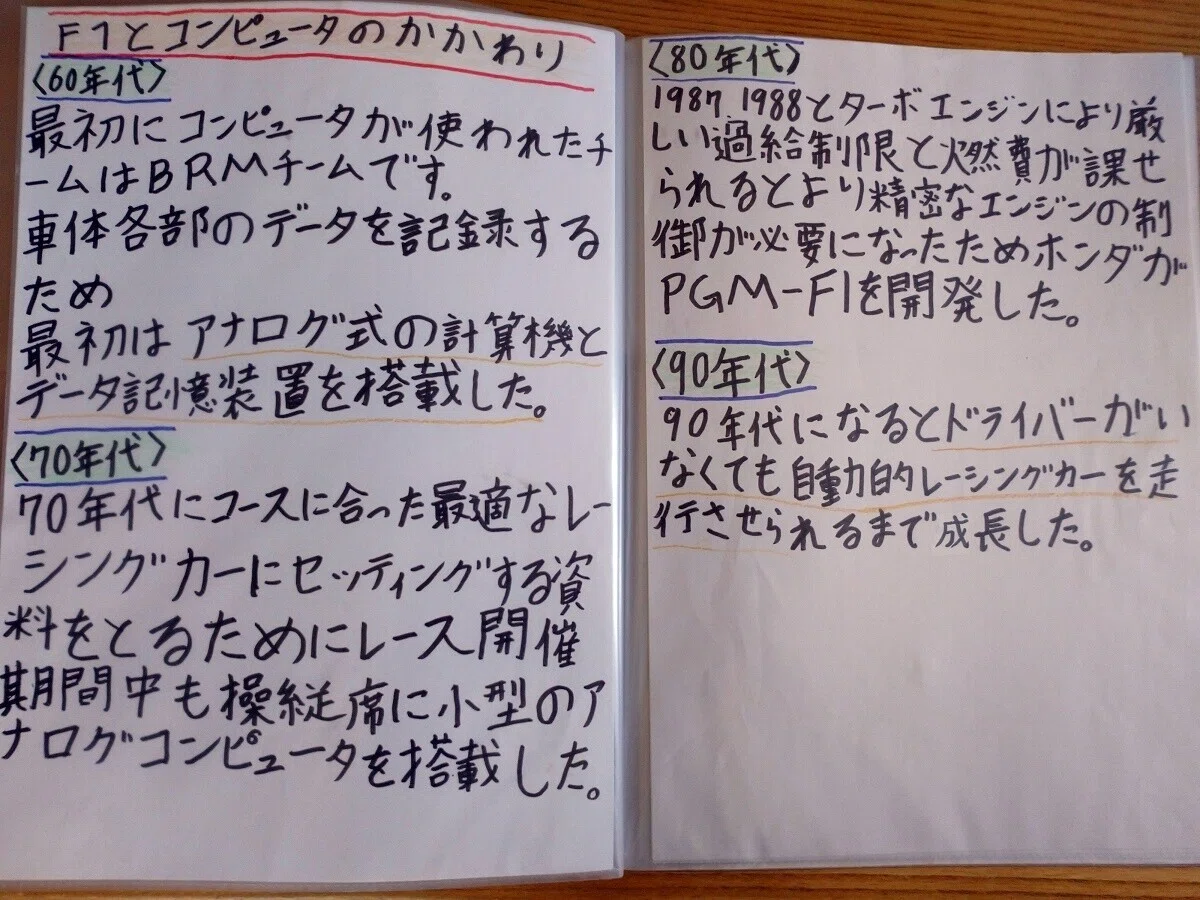 F1とコンピュータのかかわり
〈60年代〉
最初にコンピュータが使われたチ
ームはBRMチームです。
車体各部のデータを記録する
ため
最初はアナログ式の計算機と
データ記憶装置を搭載した。
〈70年代〉
70年代にコースに合った最適なレー
シングカーにセッティングする資
料をとるためにレース開催
期間中も操縦席に小型のア
ナログコンピュータを搭載した。
〈80年代〉
1987 1988とターボエンジンにより厳
しい過給制限と燃費が課せ
られるとより精密なエンジンの制
御が必要になったためホンダが
PGM-FIを開発した。
〈90年代〉
90年代になるとドライバーがい
なくても自動的レーシングカーを走
行させられるまで成長した。